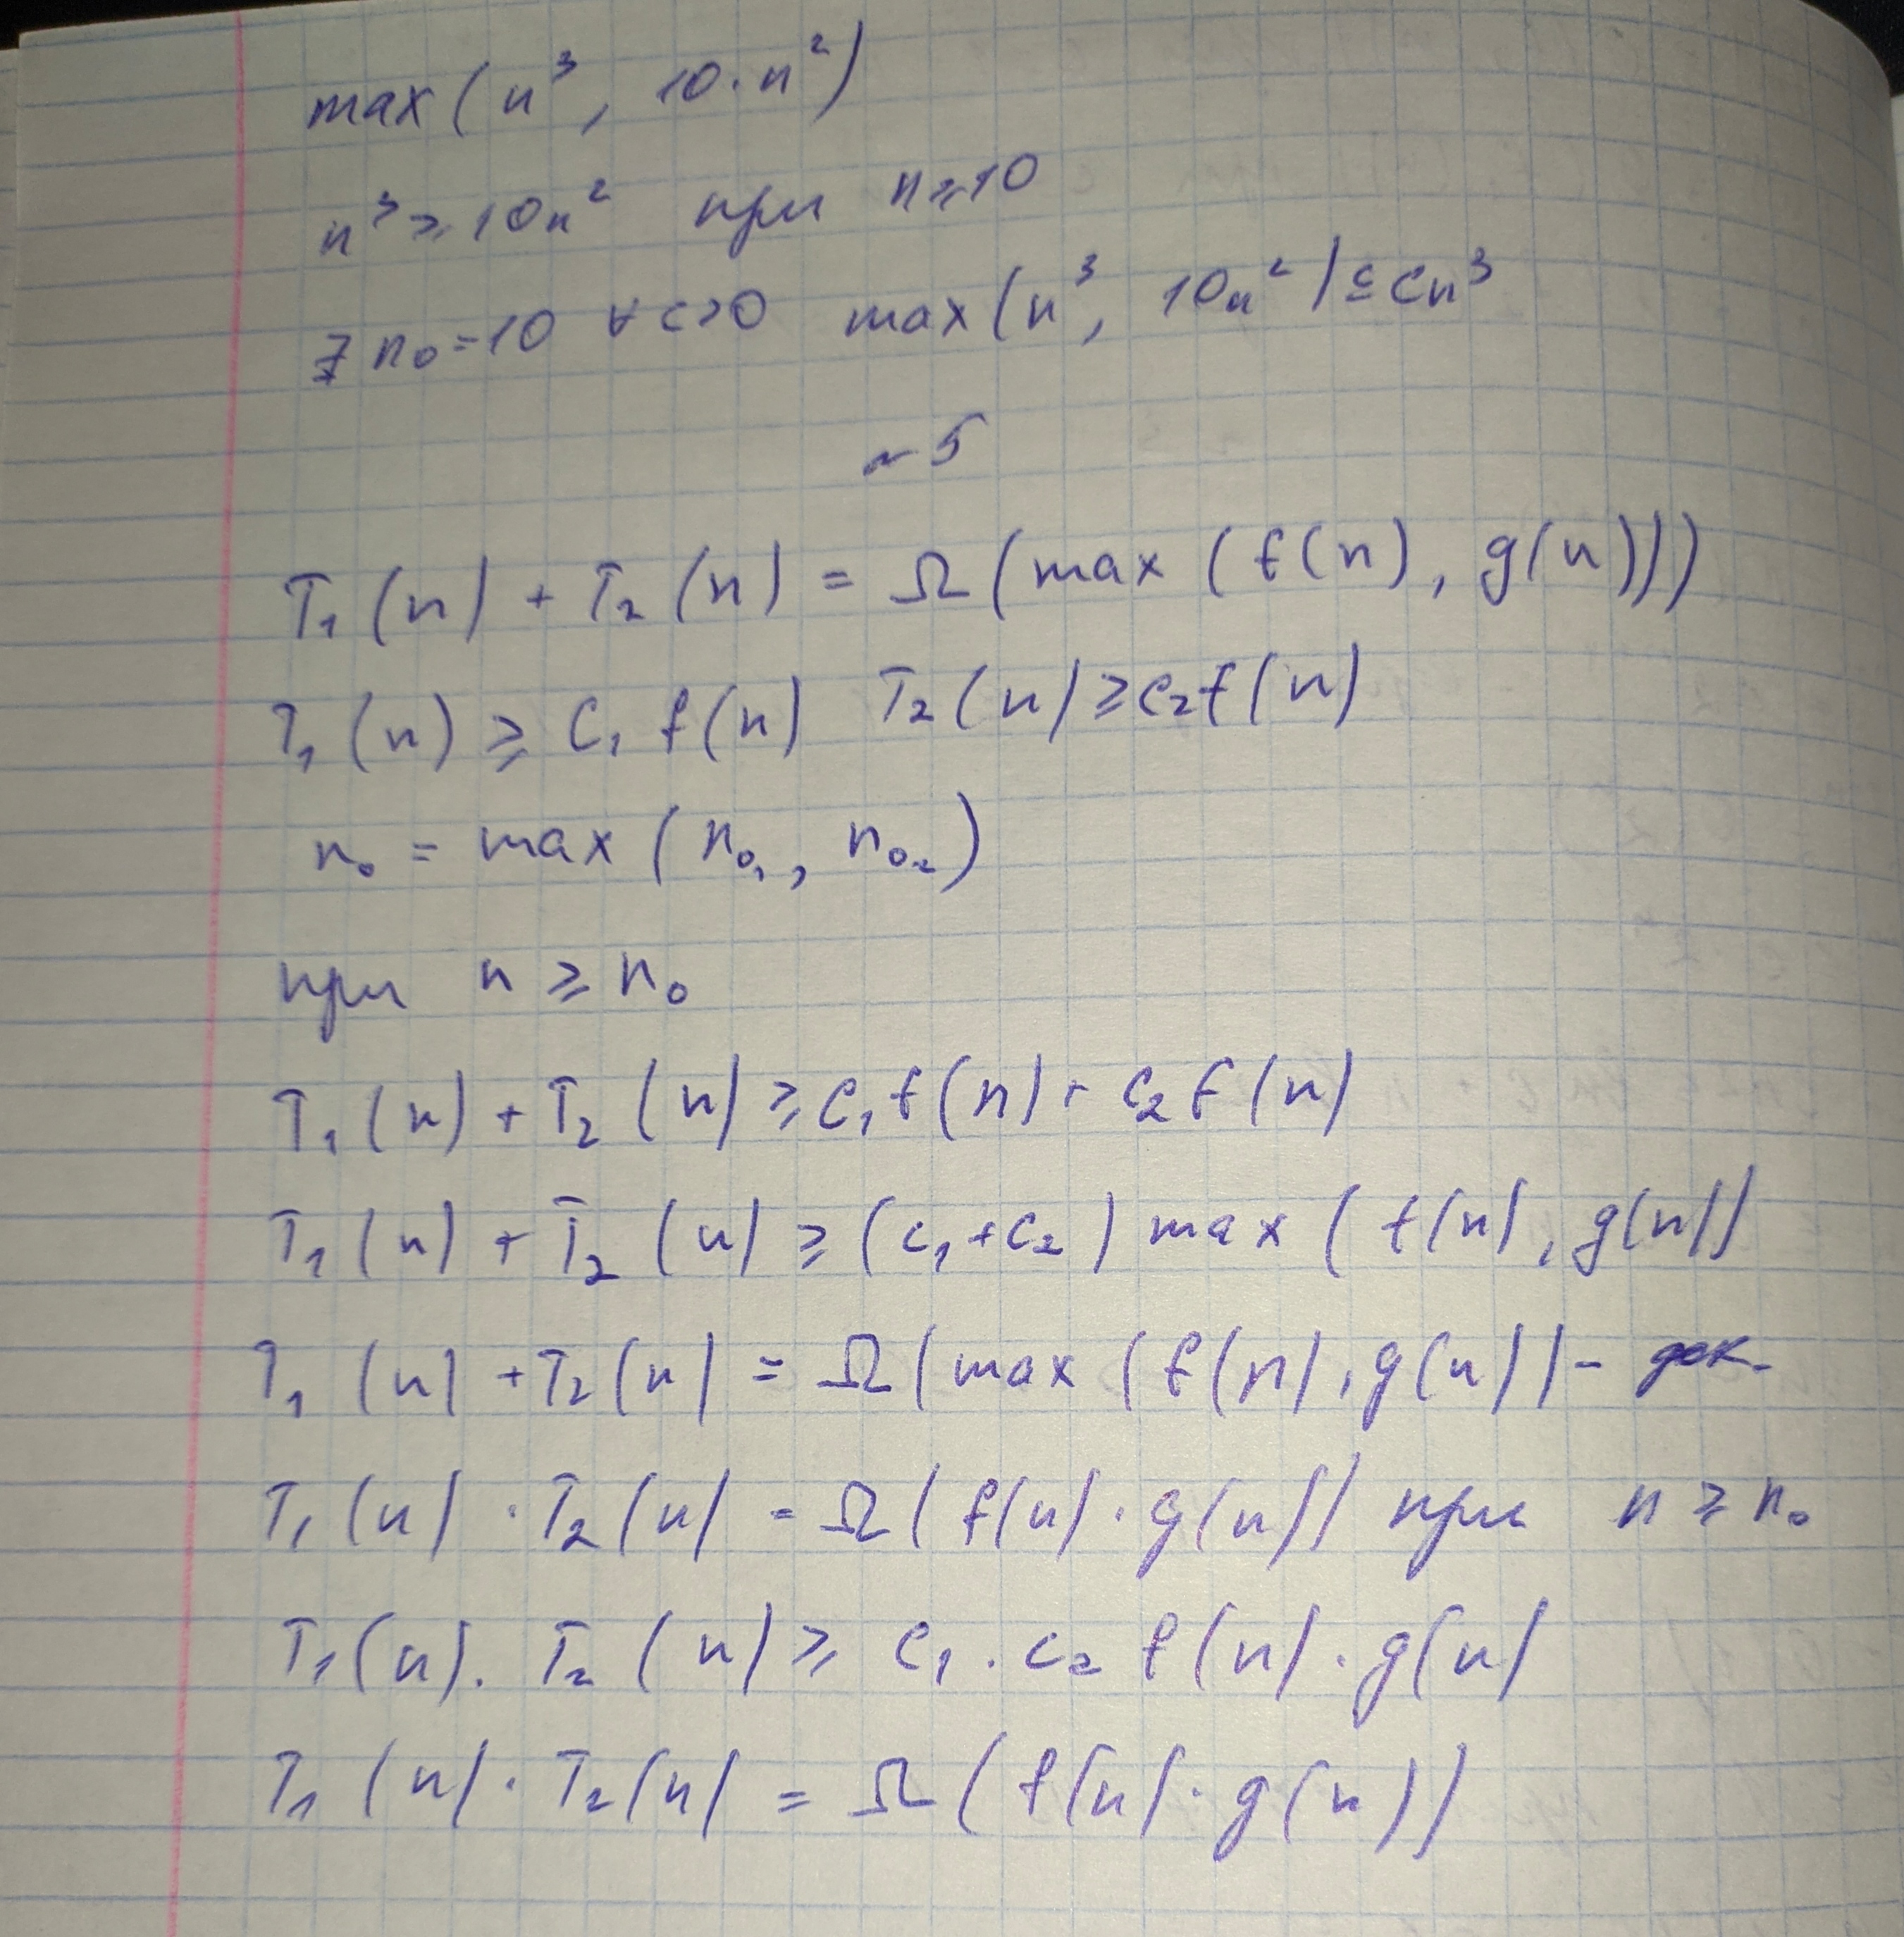 max(n³, 10·n²)
n³ ≥ 10n² при n ≥ 10
∃ n₀ = 10 ∀ c>0 max(n³, 10n²) ≤ cn³
№5
T₁(n) + T₂(n) = Ω(max(f(n), g(n)))
T₁(n) ≥ C₁ f(n) T₂(n) ≥ c₂f(n)
n₀ = max(n₀₁, n₀₂)
при n ≥ n₀
T₁(n) + T₂(n) ≥ c₁f(n) + c₂f(n)
T₁(n) + T₂(n) ≥ (c₁+c₂) max(f(n), g(n))
T₁(n) + T₂(n) = Ω(max(f(n), g(n)) - док.
T₁(n) · T₂(n) = Ω(f(n)·g(n)) при n ≥ n₀
T₁(n) · T₂(n) ≥ c₁·c₂ f(n)·g(n)
T₁(n) · T₂(n) = Ω(f(n)·g(n))